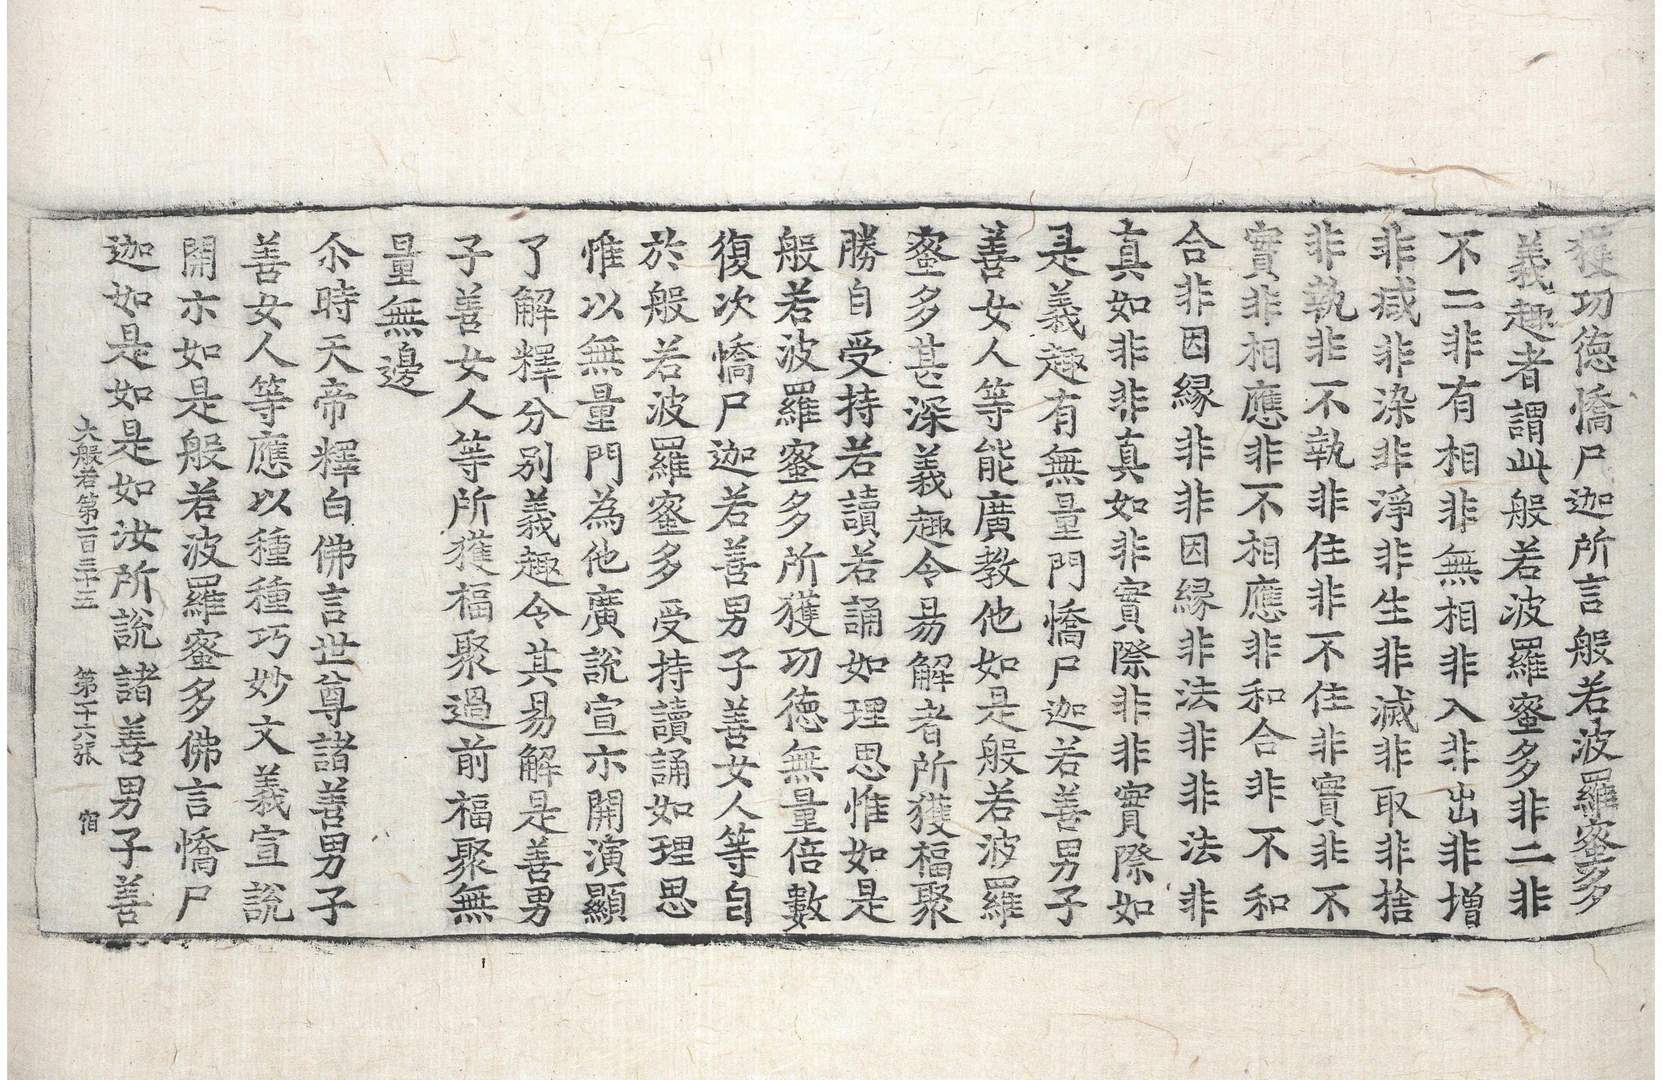 獲功徳憍尸迦所言般若波羅蜜多
義趣者謂此般若波羅蜜多非二非
不二非有相非無相非入非出非增
非減非染非淨非生非滅非取非捨
非執非不執非住非不住非實非不
實非相應非不相應非和合非不和
合非因縁非非因縁非法非非法非
真如非非真如非實際非非實際如
是義趣有無量門憍尸迦若善男子
善女人等能廣教他如是般若波羅
蜜多甚深義趣令易解者所獲福聚
勝自受持若讀若誦如理思惟如是
般若波羅蜜多所獲功徳無量倍數
復次憍尸迦若善男子善女人等自
於般若波羅蜜多受持讀誦如理思
惟以無量門為他廣說宣示開演顯
了解釋分別義趣令其易解是善男
子善女人等所獲福聚過前福聚無
量無邊
尒時天帝釋白佛言世尊諸善男子
善女人等應以種種巧妙文義宣說
開示如是般若波羅蜜多佛言憍尸
迦如是如是如汝所說諸善男子善
大般若第一百三十三 第十六張 宿